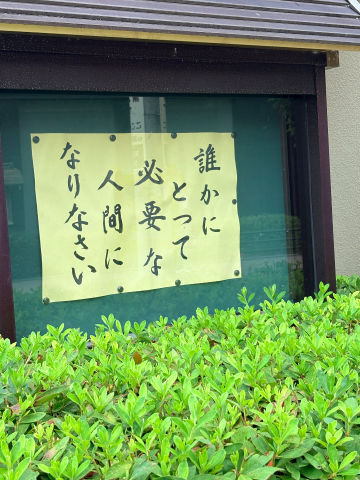 誰かに
とって
必要な
人間に
なりなさい